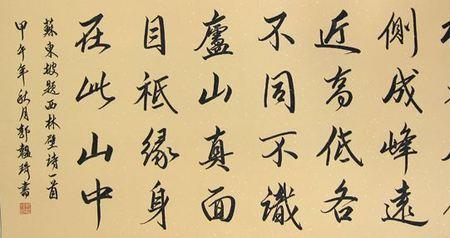 側成峰遠
近高低各
不同不識
廬山真面
目祗緣身
在此山中
蘇東坡題西林壁詩一首
甲午年秋月郭書